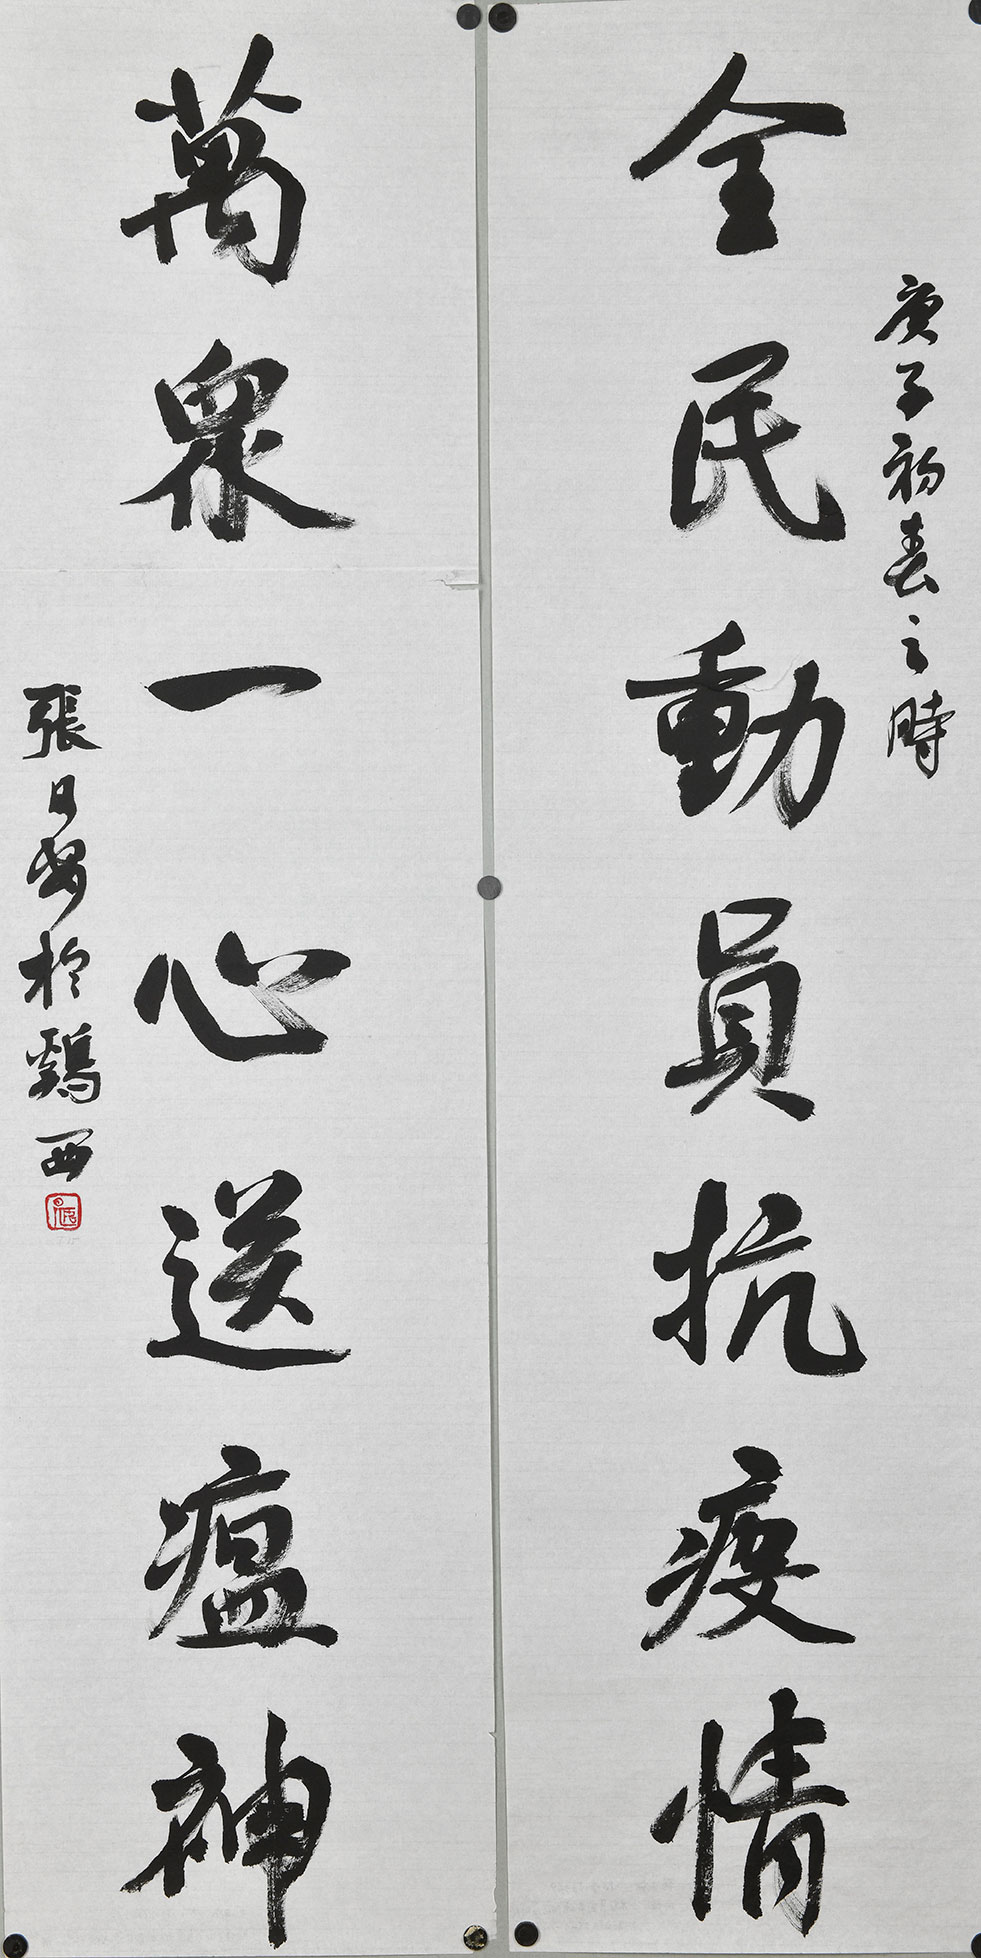 全民動員抗疫情
庚子初春之時
萬眾一心送瘟神
張日安於鷄西